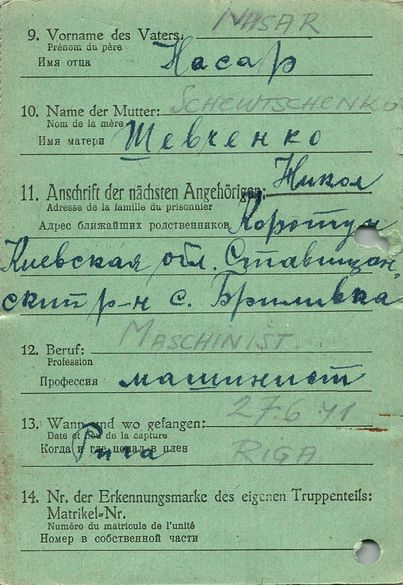 9. Vorname des Vaters: NASAR
Prénom du père
Имя отца Насар
10. Name der Mutter: SCHEWTSCHENKO
Nom de la mère
Имя матери Шевченко
11. Anschrift der nächsten Angehörigen: Никол
Adresse de la famille du prisonnier
Адрес ближайших родственников Коротун
Киевская обл. Ставищан-
ский р-н с. Бриливка
12. Beruf: MASCHINIST.
Profession
Профессия машинист
13. Wann und wo gefangen: 27.6.41
Date et lieu de la capture
Когда и где попал в плен Рига RIGA
14. Nr. der Erkennungsmarke des eigenen Truppenteils:
Matrikel-Nr.
Numéro du matricule de l'unité
Номер в собственной части